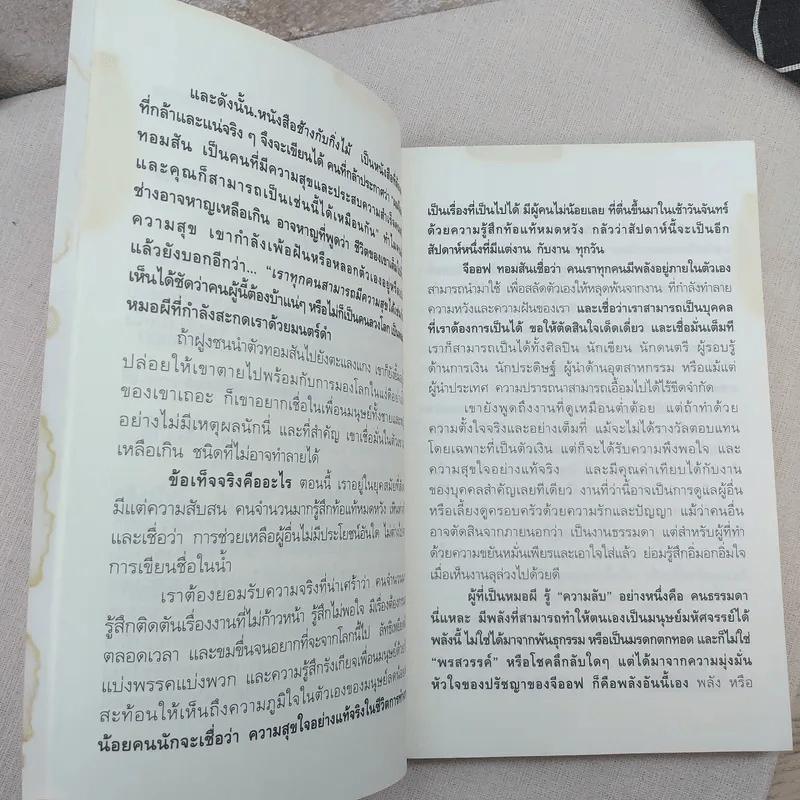 และดังนั้น.หนังสือช้างกับกิ่งไม้ เป็นหนังสือที่
ที่กล้าและแน่จริง ๆ จึงจะเขียนได้ คนที่กล้าประกาศว่า
ทอมสัน เป็นคนที่มีความสุขและประสบความสำเร็จ
และคุณก็สามารถเป็นเช่นนี้ได้เหมือนกัน"
ช่างอาจหาญเหลือเกิน อาจหาญที่พูดว่า ชีวิตของเขา
ความสุข เขากำลังเพ้อฝันหรือหลอกตัวเองอยู่หรือ
แล้วยังบอกอีกว่า... "เราทุกคนสามารถมีความสุขได้
เห็นได้ชัดว่าคนผู้นี้ต้องบ้าแน่ๆ หรือไม่ก็เป็นคนลวงโลก
หมอผีที่กำลังสะกดเราด้วยมนตร์ดำ
ถ้าฝูงชนนำตัวทอมสันไปยังตะแลงแกง เขาก็
ปล่อยให้เขาตายไปพร้อมกับการมองโลกในแง่ดี
ของเขาเถอะ ก็เขาอยากเชื่อในเพื่อนมนุษย์ทั้งชายและ
อย่างไม่มีเหตุผลนักนี่ และที่สำคัญ เขาเชื่อมั่นใน
เหลือเกิน ชนิดที่ไม่อาจทำลายได้
ข้อเท็จจริงคืออะไร ตอนนี้ เราอยู่ในยุคสมัยที่
มีแต่ความสับสน คนจำนวนมากรู้สึกท้อแท้หมดหวัง
และเชื่อว่า การช่วยเหลือผู้อื่นไม่มีประโยชน์อันใด
การเขียนชื่อในน้ำ
เราต้องยอมรับความจริงที่น่าเศร้าว่า คนจำนวน
รู้สึกติดตันเรื่องงานที่ไม่ก้าวหน้า รู้สึกไม่พอใจ มีเรื่องต้อง
ตลอดเวลา และขมขื่นจนอยากที่จะจากโลกนี้ไป
แบ่งพรรคแบ่งพวก และความรู้สึกรังเกียจเพื่อนมนุษย์ด้วย
สะท้อนให้เห็นถึงความภูมิใจในตัวเองของมนุษย์
น้อยคนนักจะเชื่อว่า ความสุขใจอย่างแท้จริงในชีวิต
เป็นเรื่องที่เป็นไปได้ มีผู้คนไม่น้อยเลย ที่ตื่นขึ้นมาในเช้าวันจันทร์
ด้วยความรู้สึกท้อแท้หมดหวัง กลัวว่าสัปดาห์นี้จะเป็นอีก
สัปดาห์หนึ่งที่มีแต่งาน กับงาน ทุกวัน
จีออฟ ทอมสันเชื่อว่า คนเราทุกคนมีพลังอยู่ภายในตัวเอง
สามารถนำมาใช้ เพื่อสลัดตัวเองให้หลุดพ้นจากงาน ที่กำลังทำลาย
ความหวังและความฝันของเรา และเชื่อว่าเราสามารถเป็นบุคคล
ที่เราต้องการเป็นได้ ขอให้ตัดสินใจเด็ดเดี่ยว และเชื่อมั่นเต็มที่
เราก็สามารถเป็นได้ทั้งศิลปิน นักเขียน นักดนตรี ผู้รอบรู้
ด้านการเงิน นักประดิษฐ์ ผู้นำด้านอุตสาหกรรม หรือแม้แต่
ผู้นำประเทศ ความปรารถนาสามารถเอื้อมไปได้ไร้ขีดจำกัด
เขายังพูดถึงงานที่ดูเหมือนต่ำต้อย แต่ถ้าทำด้วย
ความตั้งใจจริงและอย่างเต็มที่ แม้จะไม่ได้รางวัลตอบแทน
โดยเฉพาะที่เป็นตัวเงิน แต่ก็จะได้รับความพึงพอใจ และ
ความสุขใจอย่างแท้จริง และมีคุณค่าเทียบได้กับงาน
ของบุคคลสำคัญเลยทีเดียว งานที่ว่านี้อาจเป็นการดูแลผู้อื่น
หรือเลี้ยงดูครอบครัวด้วยความรักและปัญญา แม้ว่าคนอื่น
อาจตัดสินจากภายนอกว่า เป็นงานธรรมดา แต่สำหรับผู้ที่ทำ
ด้วยความขยันหมั่นเพียรและเอาใจใส่แล้ว ย่อมรู้สึกอิ่มอกอิ่มใจ
เมื่อเห็นงานลุล่วงไปด้วยดี
ผู้ที่เป็นหมอผี รู้ "ความลับ" อย่างหนึ่งคือ คนธรรมดา
นี่แหละ มีพลังที่สามารถทำให้ตนเองเป็นมนุษย์มหัศจรรย์ได้
พลังนี้ ไม่ใช่ได้มาจากพันธุกรรม หรือเป็นมรดกตกทอด และก็ไม่ใช่
"พรสวรรค์" หรือโชคลึกลับใดๆ แต่ได้มาจากความมุ่งมั่น
หัวใจของปรัชญาของจีออฟ ก็คือพลังอันนี้เอง พลัง หรือ